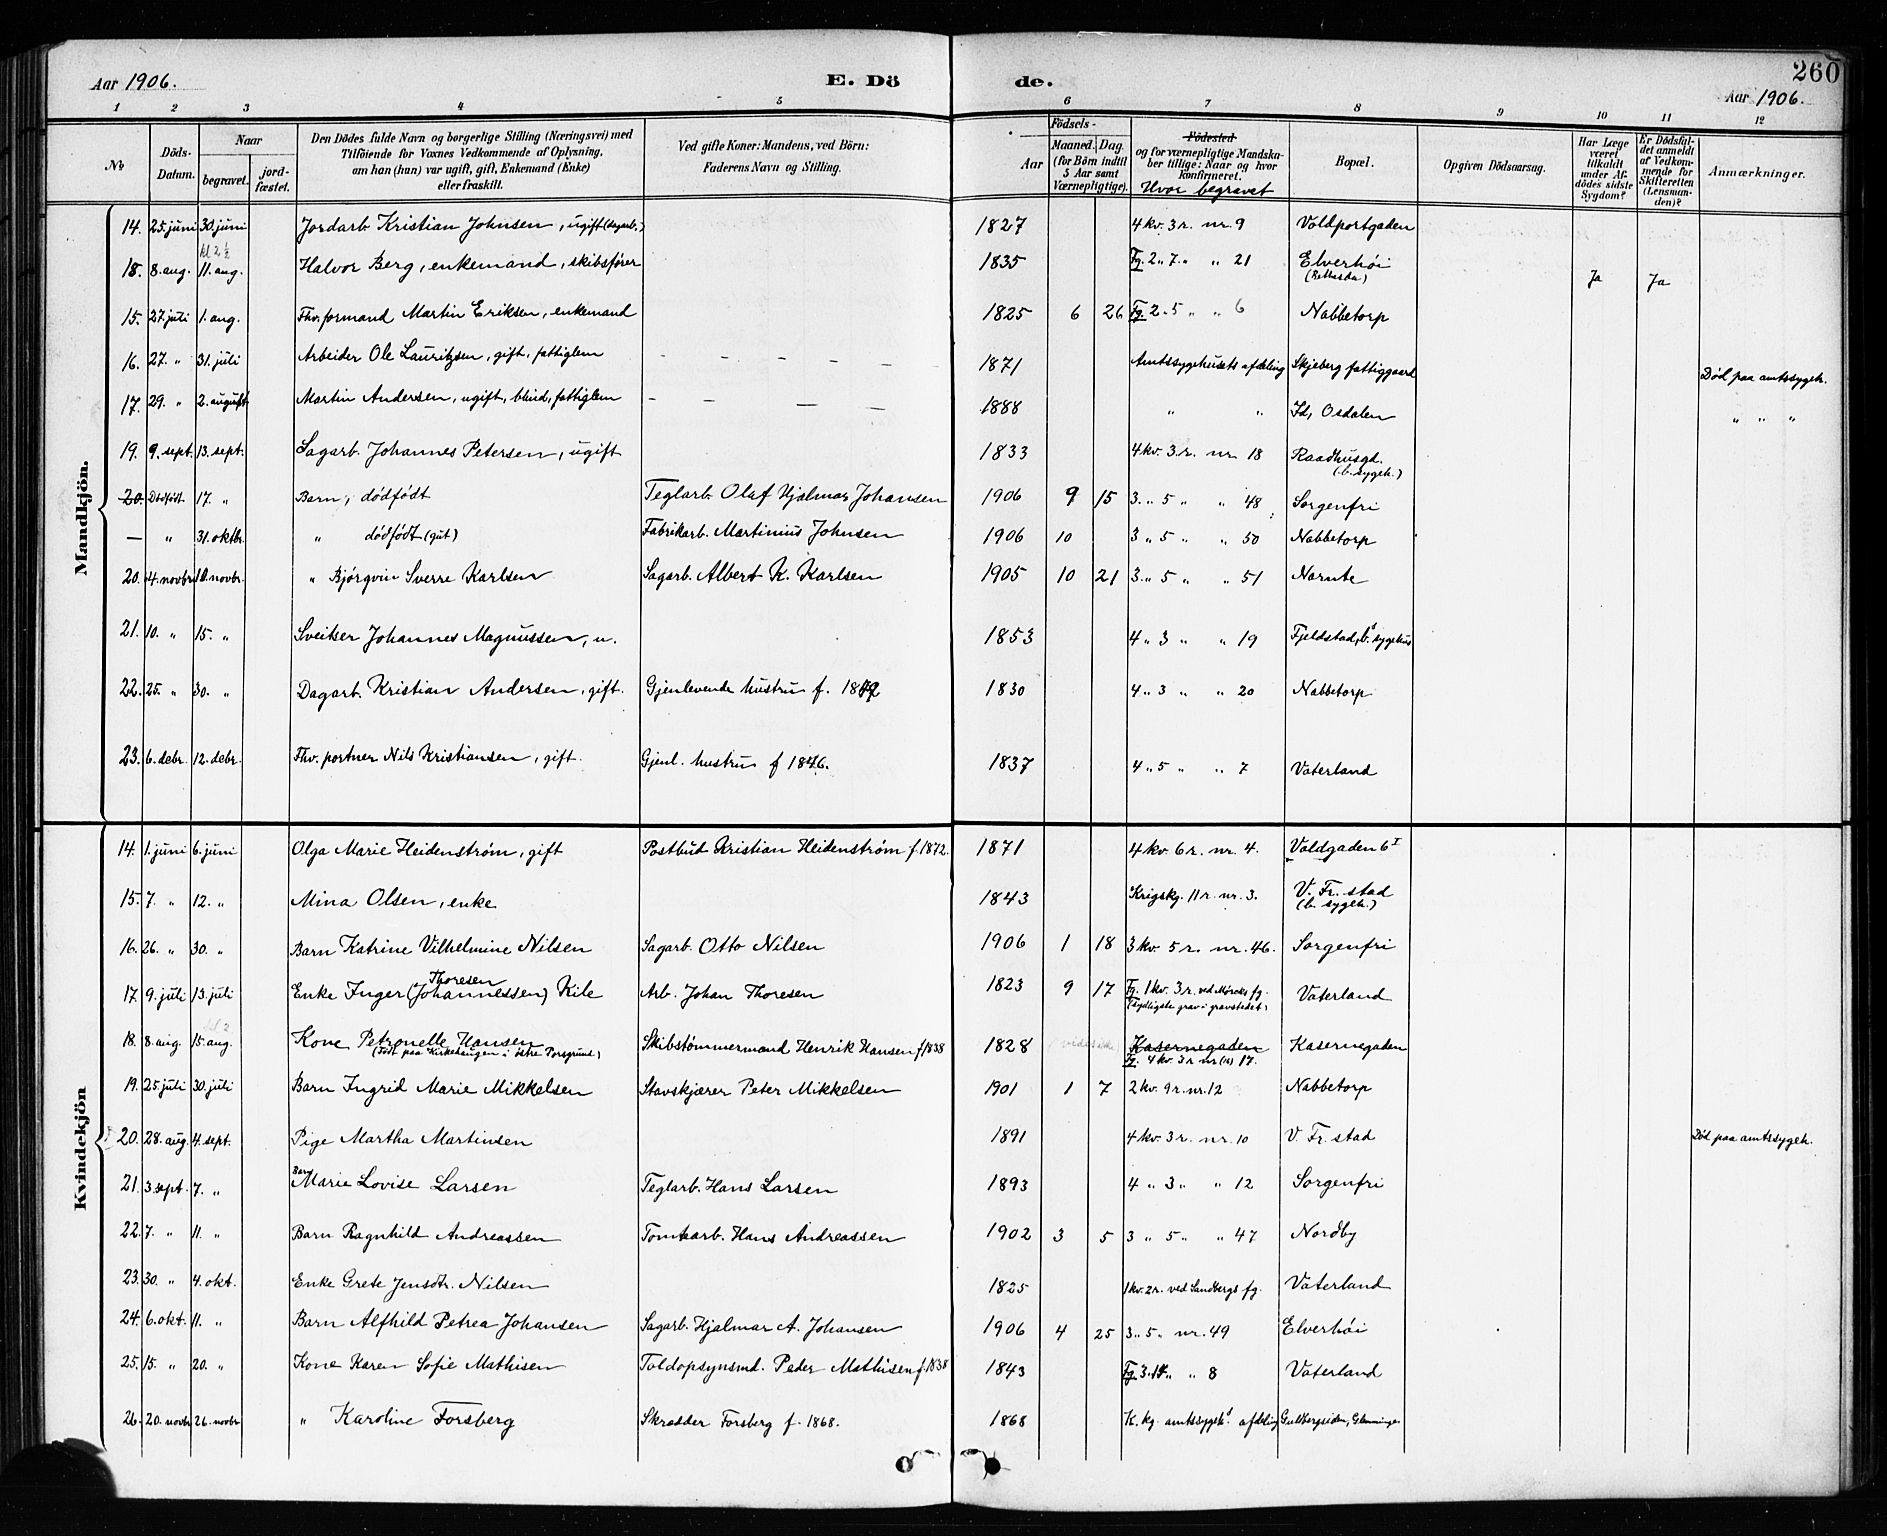 Aar 1906. E. Dö de. 260
Aar 1906.
1 2 3 4 5 6 7 8 9 10 11 12
No Döds-Datum. Naar begravet. jordfæstet. Den Dödes fulde Navn og borgerlige Stilling (Næringsvei) med Tilföiende for Voxnes Vedkommende af Oplysning, om han (hun) var ugift, gift, Enkemand (Enke) eller fraskilt. Ved gifte Koner: Mandens, ved Börn: Faderens Navn og Stilling. Födsels- Aar Maaned. Dag. (for Börn indtil 5 Aar samt Værnepligtige). Födested og for værnepligtige Mandskaber tillige: Naar og hvor konfirmeret. Hvor begravet Bopæl. Opgiven Dödsaarsag. Har Læge været tilkaldt under Afdödes sidste Sygdom? Er Dödsfaldet anmeldt af Vedkommende for Skifteretten (Lensmanden)? Anmærkninger.
Mandkjön.
14. 25 juni 30. juni Jordarb. Kristian Johnsen, ugift (dagarb.) 1827 4 kv. 3 r. nr. 9 Voldportgaden
kl 2 ½
18. 8. aug. 11. aug. Halvor Berg, enkemand, skibsfører 1835 Fg. 2 „ 7. „ „ 21 Elverhöi Ja Ja
15. 27. juli 1. aug. Thv. formand Martin Eriksen, enkemand 1825 6 26 Fg. 2. 5 „ „ 6 Nabbetorp
16. 27. „ 31. juli Arbeider Ole Lauritzsen, gift, fattiglem 1871 Amtssygehusets afdeling Skjeberg fattiggaard Död paa amtssygeh.
17. 29. „ 2. august Martin Andersen, ugift, blind, fattiglem 1888 „ „ Id, Osdalen „ „ „
19. 9. sept. 13. sept. Sagarb. Johannes Petersen, ugift 1833 4 kv. 3. r. nr. 18 Raadhusgd.
(b. sygeh.)
20. Dødfödt 17. „ Barn, dödfödt Teglarb. Olaf Hjalmar Johansen 1906 9 15 3. „ 5 „ „ 48 Sorgenfri
— „ 31. oktbr. „ dödfödt (gut) Fabrikarb. Martinius Johnsen 1906 10 3 „ 5 „ „ 50 Nabbetorp
20. 4. novbr. 10. novbr. „ Bjørgvin Sverre Karlsen Sagarb. Albert K. Karlsen 1905 10 21 3. „ 5 „ „ 51 Nørnte
21. 10. „ 15. „ Sveitser Johannes Magnussen, u. 1853 4 „ 3 „ „ 19 Fjeldstad, b.s sygehus
22. 25. „ 30. „ Dagarb. Kristian Andersen, gift. Gjenlevende hustru f. 1842 1830 4 „ 3 „ „ 20 Nabbetorp
23. 6. debr. 12. debr. Thv. portner Nils Kristiansen, gift. Gjenl. hustru f 1846. 1837 4 „ 5 „ „ 7 Vaterland
Kvindekjön
14. 1. juni 6. juni Olga Marie Heidenstrøm, gift Postbud Kristian Heidenstrøm f. 1872. 1871 4 kv. 6 r. nr. 4. Voldgaden 6 I
15. 7. „ 12. „ Mina Olsen, enke 1843 Krigskg. 11 r. nr. 3. V. Fr. stad
(b. sygeh.)
16. 26. „ 30. „ Barn Katrine Vilhelmine Nilsen Sagarb. Otto Nilsen 1906 1 18 3 kv. 5 r. nr. 46. Sorgenfri
Thoresen
17. 9. juli 13. juli Enke Inger (Johannessen) Kile Arb. Johan Thoresen 1823 9 17 Fg. 1 kv. 3 r. ved Mørcks fg. Vaterland
(sydligste grav i gravstedet)
kl 2
18. 8. aug. 15. aug. Kone Petronelle Hansen Skibstømmermand Henrik Hansen f 1838 1828 Kasernegaden Kasernegaden
(Født paa Kirkehaugen i østre Porsgrund) Fg. 4 kv. 3 r nr (16) 17.
19. 25 juli 30. juli Barn Ingrid Marie Mikkelsen Stavskjærer Peter Mikkelsen 1901 1 7 2 kv. 9 r. nr. 12 Nabbetorp
20. 28. aug. 4. sept. Pige Martha Martinsen 1891 4 kv. 3 r. nr. 10 V. Fr. stad Död paa amtssygeh.
21. 3. sept. 7. „ Barn Marie Lovise Larsen Teglarb. Hans Larsen 1893 4 „ 3 „ „ 12 Sorgenfri
22. 7. „ 11. „ Barn Ragnhild Andreassen Tomtearb. Hans Andreassen 1902 3 5 3 „ 5 „ „ 47 Nordby
23. 30. „ 4. okt. Enke Grete Jensdtr. Nilsen 1825 1 kv. 2 r. ved Sandbergs fg. Vaterland
24. 6. okt. 11. „ Barn Alfhild Petrea Johansen Sagarb. Hjalmar A. Johansen 1906 4 25 3 „ 5 „ nr. 49 Elverhöi
25. 15. „ 20. „ Kone Karen Sofie Mathisen Toldopsynsmd. Peder Mathisen f. 1838 1843 Fg. 3. 14 „ „ 8 Vaterland
26. 20. novbr 26. novbr „ Karoline Forsberg Skrædder Forsberg f. 1868. 1868 K. kg. amtssygeh.s afdeling Guldbergsiden, Glemminge